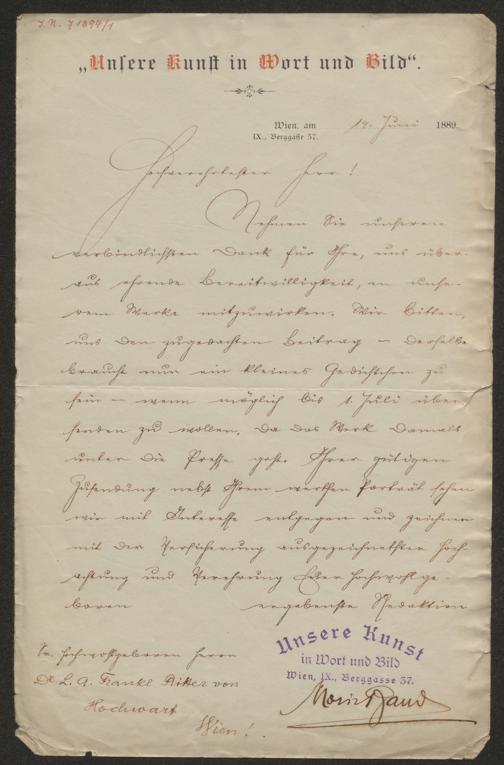 I.N. 71894/1
„Unsere Kunst in Wort und Bild“.
Wien, am 14. Juni 1889
IX., Berggasse 37.
Hochverehrtester Herr!
Nehmen Sie unseren
verbindlichsten Dank für Ihre, uns über-
aus ehrende Bereitwilligkeit, an unse-
rem Werke mitzuwirken. Wir bitten,
uns den zugedachten Beitrag – derselbe
braucht nur ein kleines Gedichtchen zu
sein – wenn möglich bis 1. Juli über-
senden zu wollen, da das Werk damals
unter die Presse geht. Ihrer gütigen
Zusendung nebst Ihrem werthen Porträt sehen
wir mit Interesse entgegen und zeichnen
mit der Versicherung ausgezeichnetster Hoch-
achtung und Verehrung Euer Hochwohlge-
boren ergebenste Redaktion
Unsere Kunst
in Wort und Bild
Wien, IX., Berggasse 37.
Sr. Hochwohlgeboren Herrn
Dr L. A. Frankl Ritter von
Hochwart
Wien!
Moriz Band